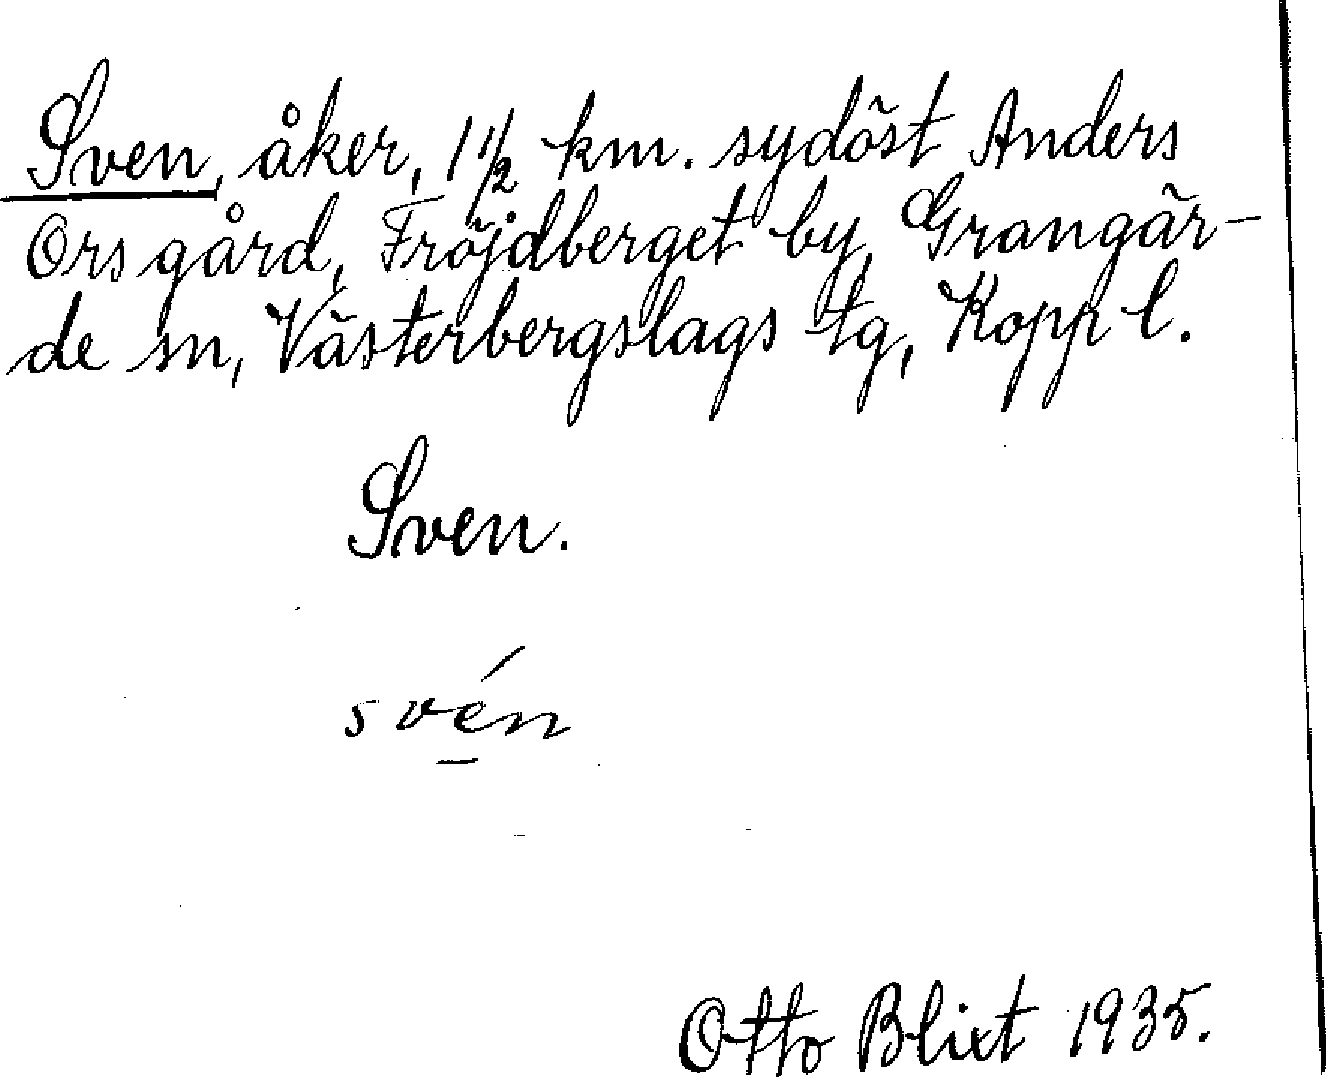 Sven, åker, 1 1/2 km. sydöst Anders
Ors gård, Fröjdberget by, Grangär-
de sn, Västerbergslags tg, Kopp l.
Sven.
svén
Otto Blixt 1935.